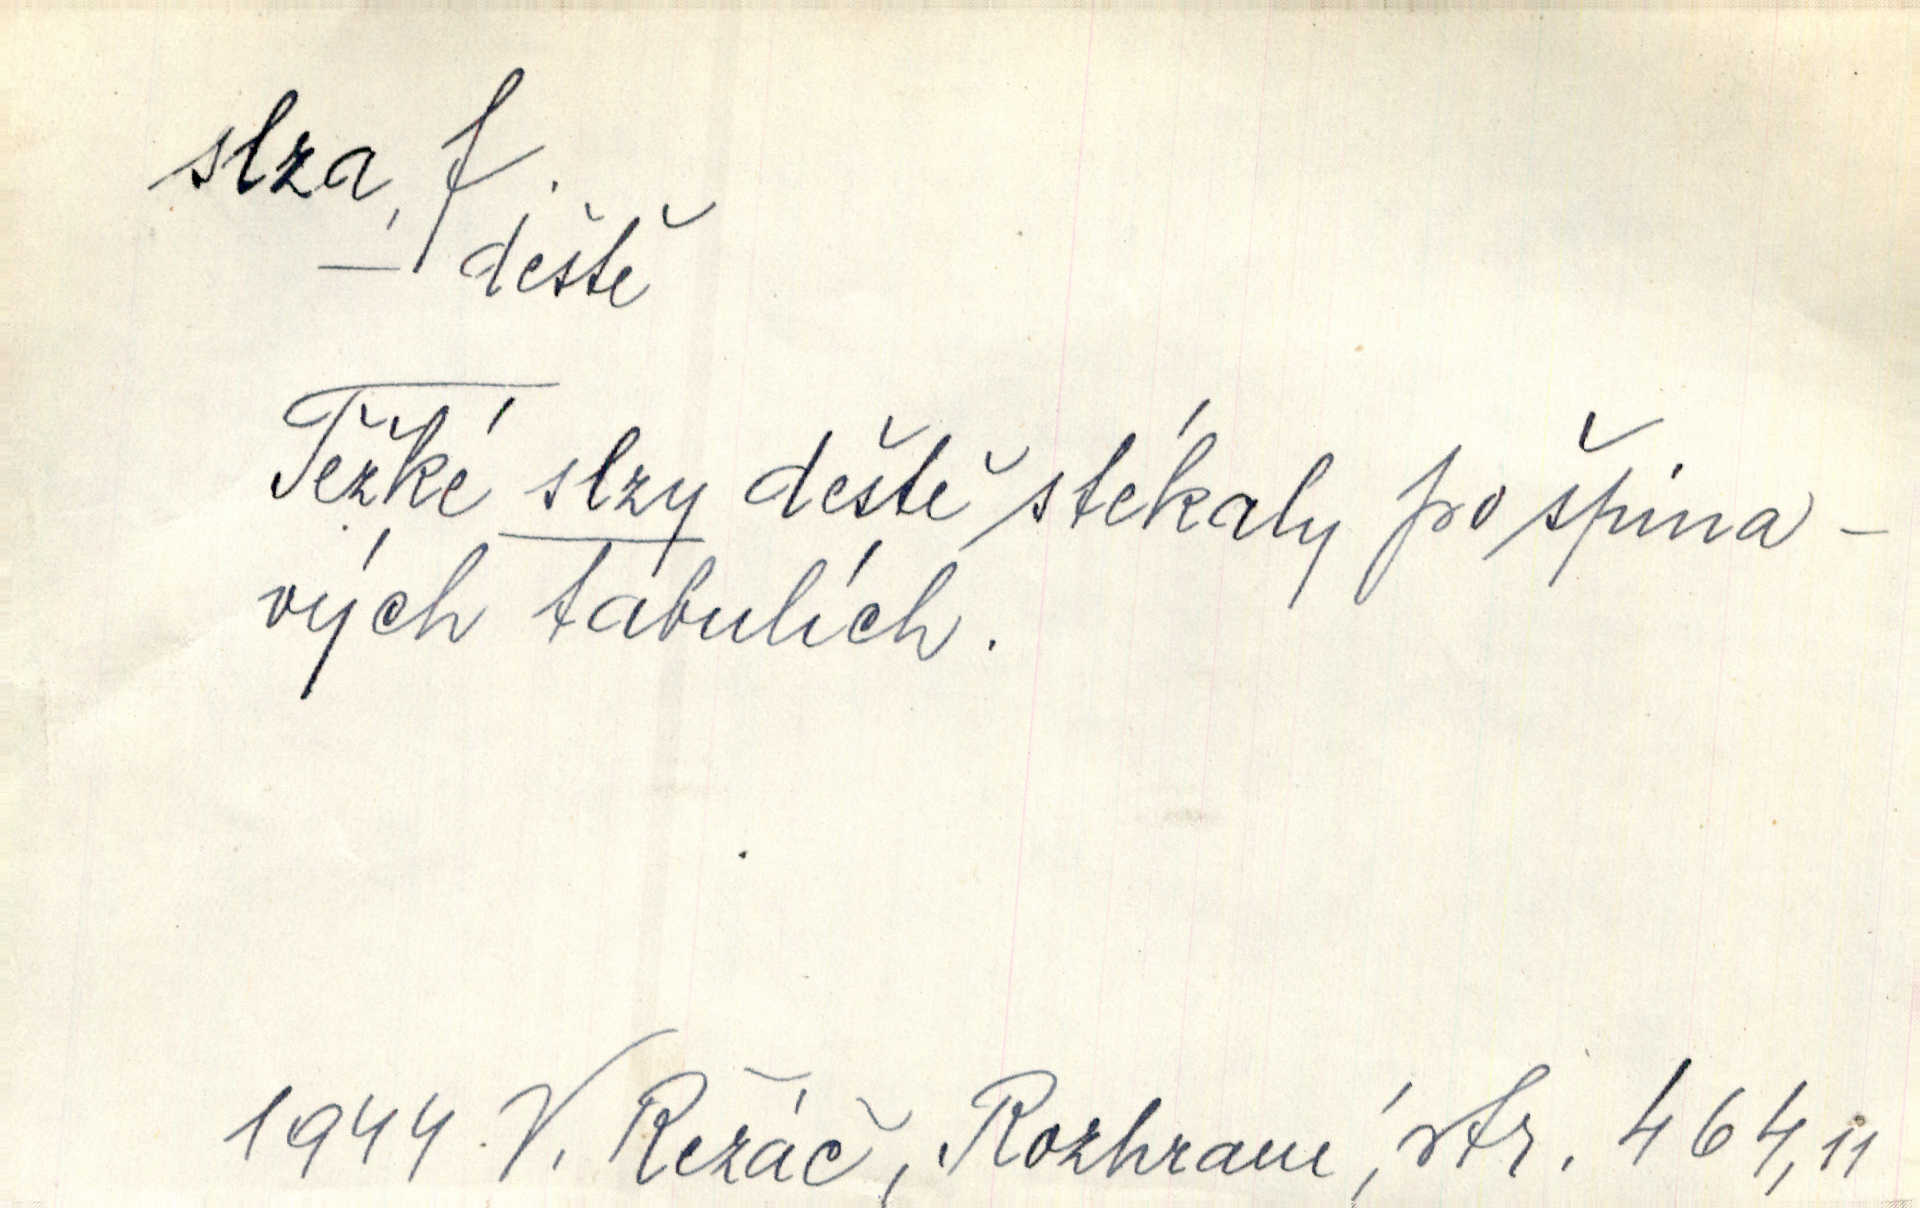 slza, f.
— deště
Těžké slzy deště stékaly po špina-
vých tabulích.
1944 V. Řezáč, Rozhraní, str. 464, 11